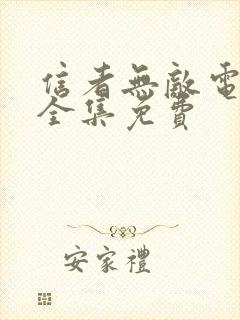 信者無敵電
全集免費
安家禮